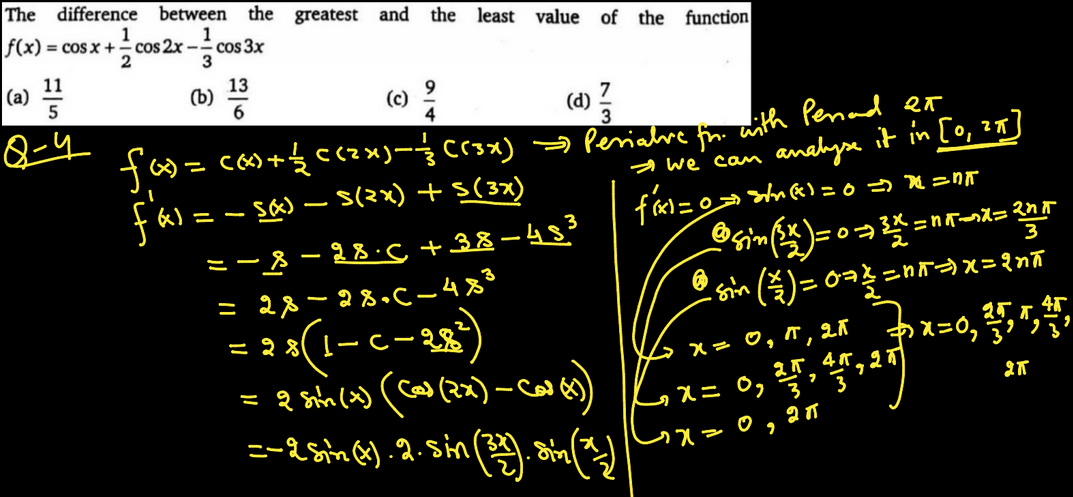 The difference between the greatest and the least value of the function
f(x) = cos x + 1/2 cos 2x − 1/3 cos 3x
(a) 11/5 (b) 13/6 (c) 9/4 (d) 7/3
Q-4
f(x) = c(x) + 1/2 c(2x) − 1/3 c(3x) ⇒ Periodic fn. with Period 2π
⇒ we can analyse it in [0, 2π]
f'(x) = − s(x) − s(2x) + s(3x)
= − s − 2s.c + 3s − 4s³
= 2s − 2s.c − 4s³
= 2s(1 − c − 2s²)
= 2 sin(x) (cos(2x) − cos(x))
= −2 sin(x) . 2 . sin(3x/2) . sin(x/2)
f'(x) = 0 ⇒ sin(x) = 0 ⇒ x = nπ
sin(3x/2) = 0 ⇒ 3x/2 = nπ ⇒ x = 2nπ/3
sin(x/2) = 0 ⇒ x/2 = nπ ⇒ x = 2nπ
x = 0, π, 2π
x = 0, 2π/3, 4π/3, 2π
x = 0, 2π
⇒ x = 0, 2π/3, π, 4π/3,
2π